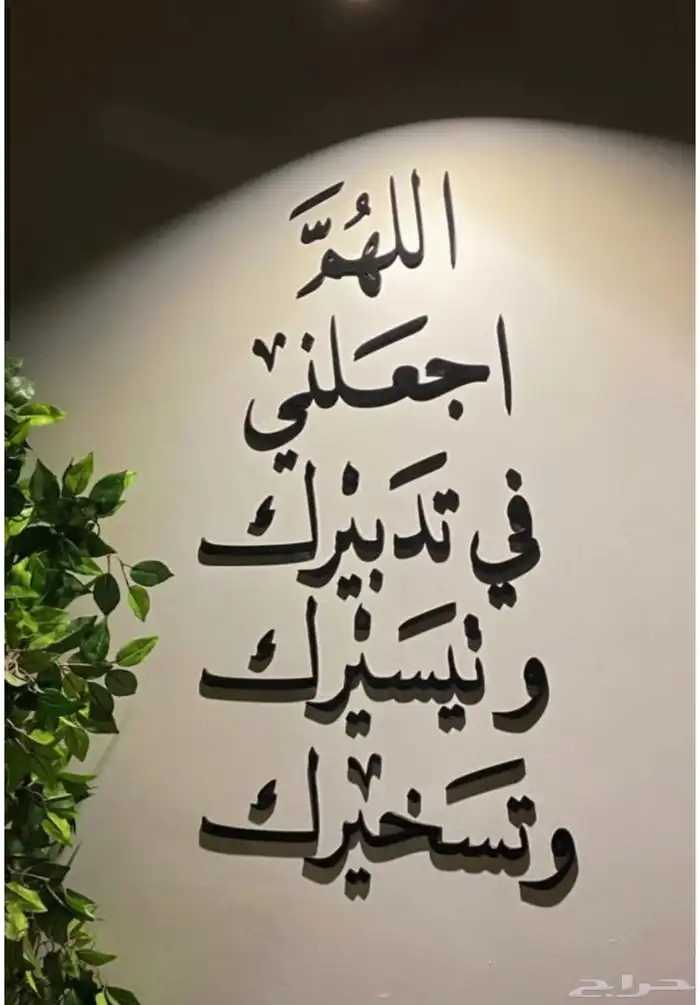 اللهُمَّ
اجعَلني
في تدَبيرك
و تيَسيرك
وتسَخيرك
حراج